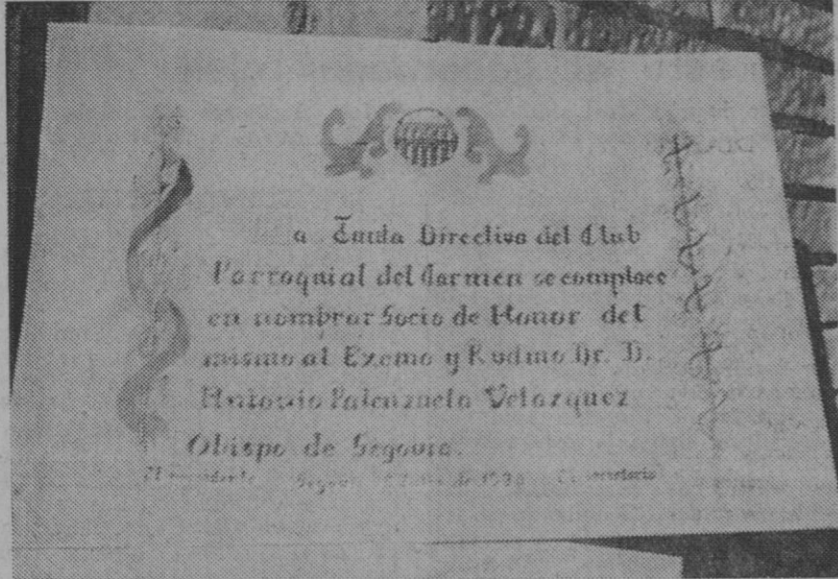 a Junta Directiva del Club
Parroquial del Carmen se complace
en nombrar Socio de Honor del
mismo al Excmo y Rvdmo Dr. D.
Antonio Palenzuela Velazquez
Obispo de Segovia.
El presidente Segovia de El secretario